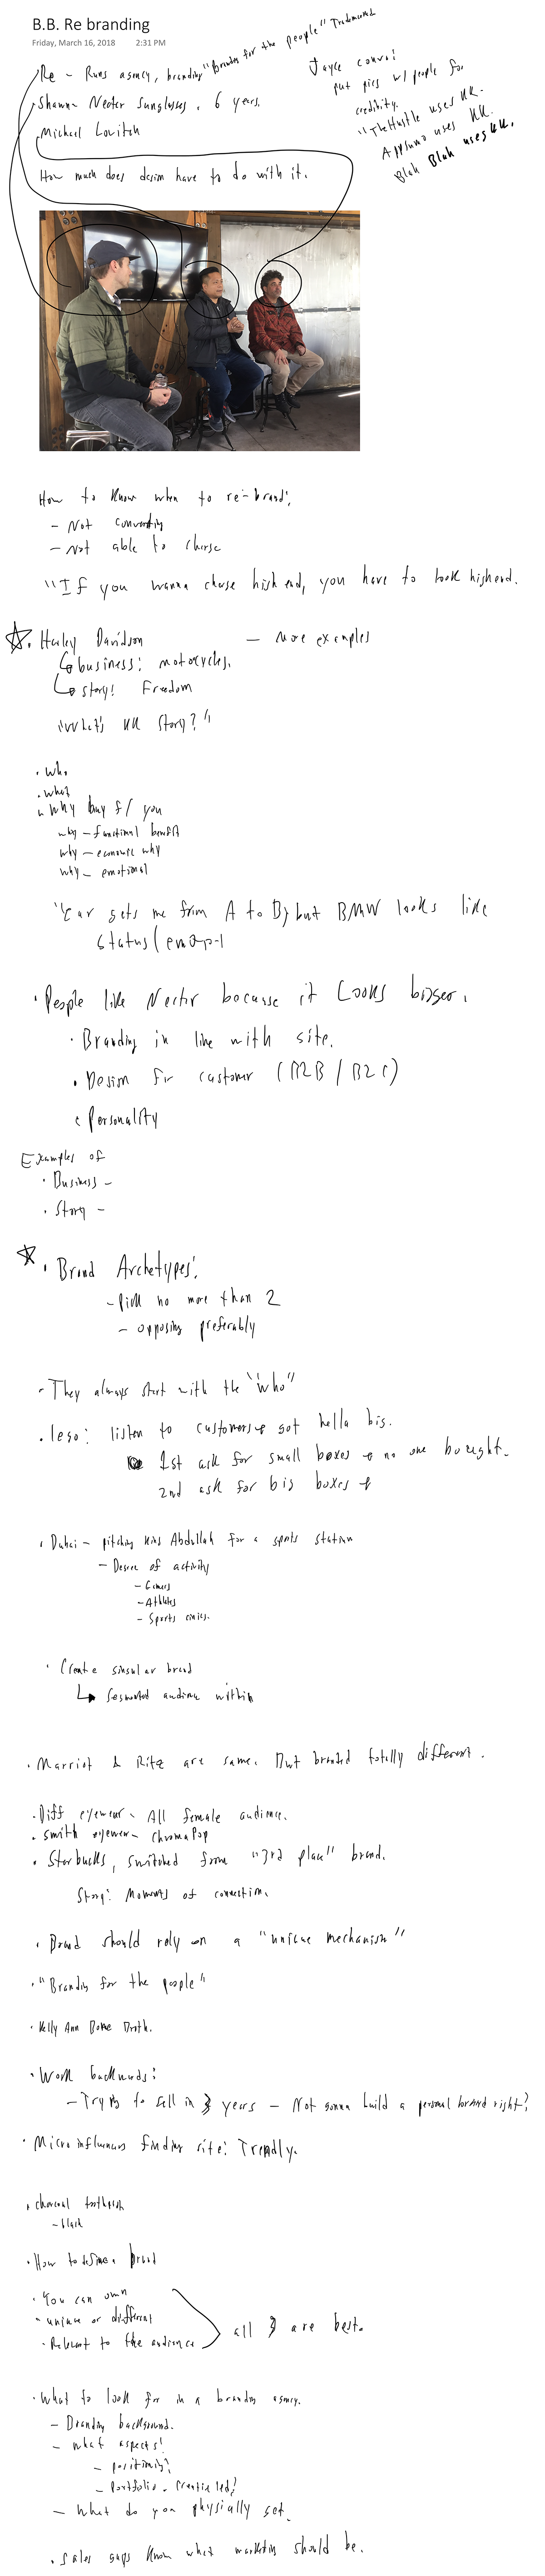 B.B. Re branding
Friday, March 16, 2018 2:31 PM
Re - Runs agency, branding "Branding for the people" Trademarked
Shawn - Nectar sunglasses, 6 years.
Michael Lovitch
How much does design have to do with it.
Jayce convo:
Put pics w/ people for
credibility.
"TheHustle uses KK.
Appsumo uses KK.
Blah Blah uses KK.
How to know when to re-brand:
- Not converting
- Not able to charge
"If you wanna charge high end, you have to look highend.
Harley Davidson - More examples
business: motorcycles.
story: Freedom
"What's KK Story?"
• who
• what
• Why buy f/ you
why - functional benefit
why - economic why
why - emotional
"Car gets me from A to B, but BMW looks like
status (
• People like Nectar because it Looks bigger.
• Branding in line with site.
• Design for customer (B2B / B2C)
• Personality
Examples of
• Business -
• Story -
• Brand Archetypes:
- Pick no more than 2
- opposing preferably
- They always start with the "who"
• lego: listen to customers → got hella big.
1st ask for small boxes → no one bought.
2nd ask for big boxes →
• Dubai - pitching King Abdullah for a sports station
- Degree of activity
- Gamers
- Athletes
- Sports
• Create singular brand
↳ Segmented audience within
• Marriot & Ritz are same. But branded totally different.
• Diff eyewear - All female audience.
• Smith eyewear - ChromaPop
• Starbucks, switched from "3rd place" brand.
Story: Moments of connection.
• Brand should rely on a "unique mechanism"
• "Branding for the people"
• Kelly Ann
• Work backwards:
- Trying to sell in 3 years - Not gonna build a personal brand right?
• Micro influencers finding site: Trendly.
• charcoal toothpaste
- black
• How to define a brand
• You can own
• unique or different
• Relevant to the audience
all 3 are best.
• What to look for in a branding agency.
- Branding background.
- What aspects?
- positioning?
- Portfolio - Creative led?
- What do you physically get.
• Sales guys know what marketing should be.